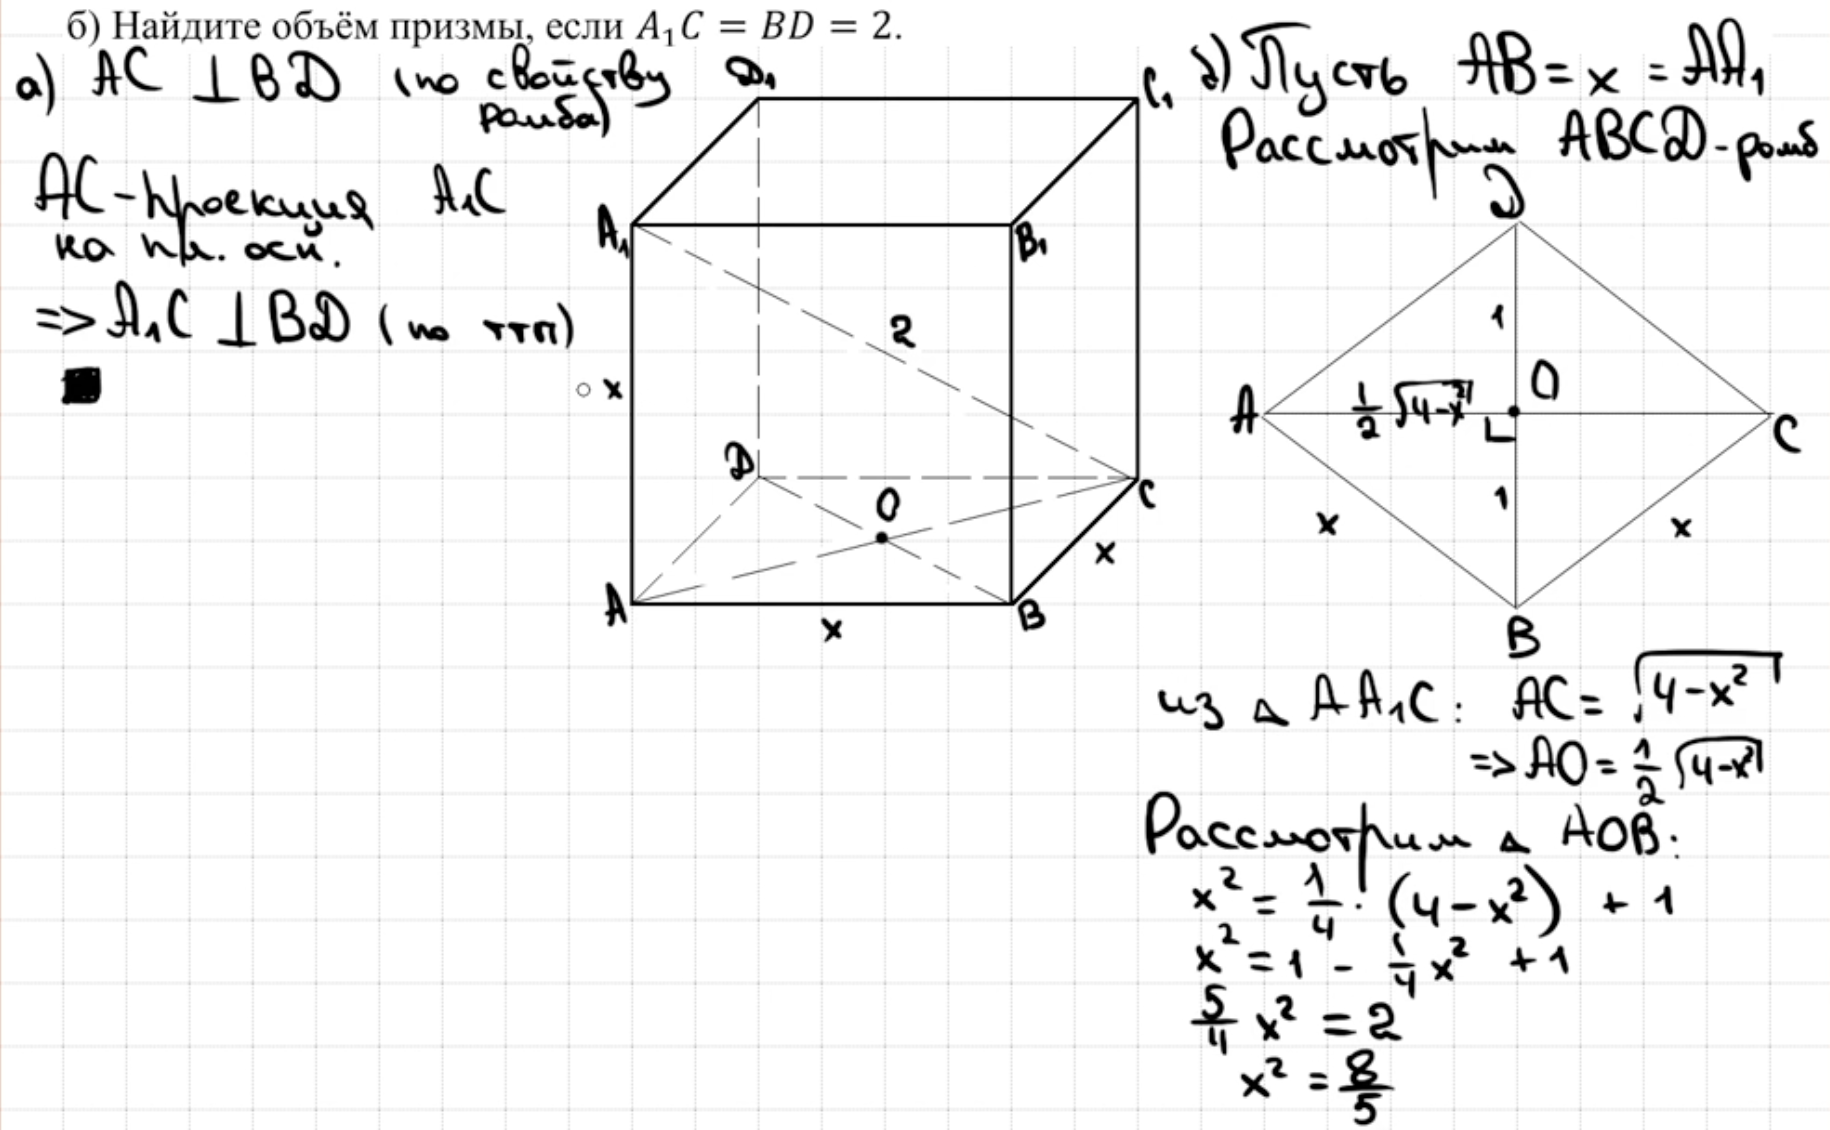 б) Найдите объём призмы, если A₁C = BD = 2.
а) AC ⊥ BD (по свойству
ромба)
AC - проекция A₁C
на пл. осн.
=> A₁C ⊥ BD (по ттп)
D₁
C₁
A₁
B₁
2
x
D
O
C
x
A
B
x
б) Пусть AB = x = AA₁
Рассмотрим ABCD - ромб
D
1
O
A
1/2 √(4-x²)
C
1
x
x
B
из △ AA₁C: AC = √(4-x²)
=> AO = 1/2 √(4-x²)
Рассмотрим △ AOB:
x² = 1/4 · (4-x²) + 1
x² = 1 - 1/4 x² + 1
5/4 x² = 2
x² = 8/5